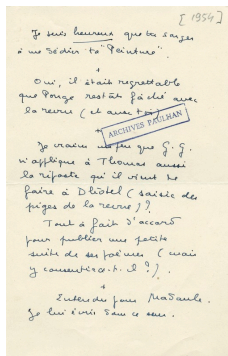 [1954]
Je suis heureux que tu songes
à me dédier ta "Peinture".
+
Oui, il était regrettable
que Ponge restât fâché avec
la revue (et avec toi)
ARCHIVES PAULHAN
Je crains un peu que G. G.
n'applique à Thomas aussi
la riposte qu'il vient de
faire à Dhôtel (saisie des
piges de la revue)?
Tout à fait d'accord
pour publier une petite
suite de ses poèmes (mais
y consentira-t-il?).
+
Entendu pour Nadaule.
Je lui écris dans ce sens.